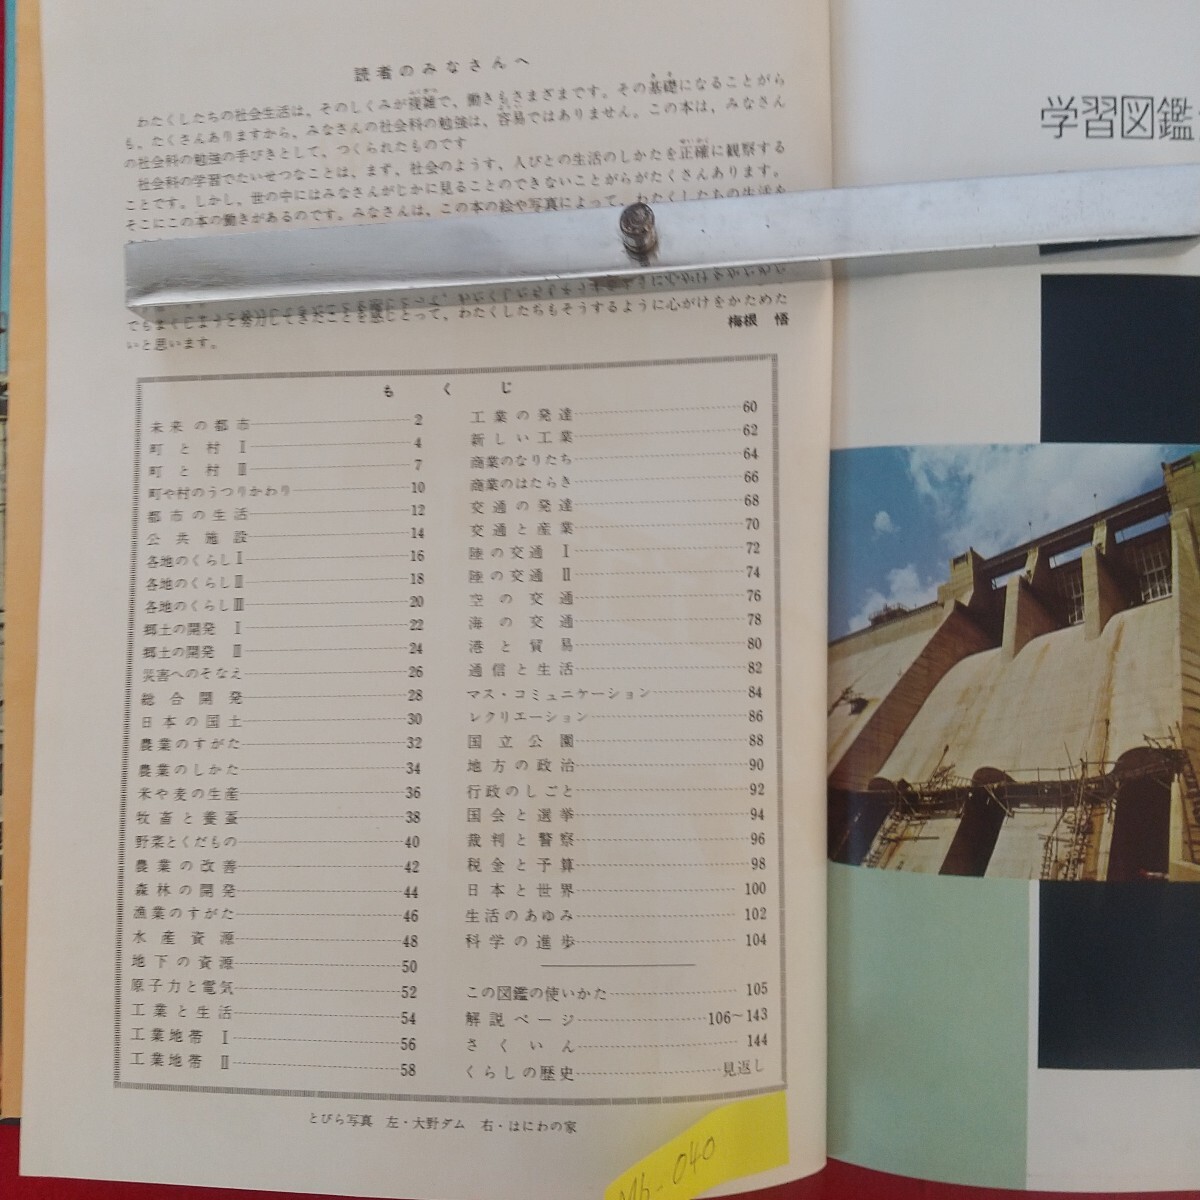 読者のみなさんへ
わたくしたちの社会生活は、そのしくみが複雑で、働きもさまざまです。その基礎になることがら
も、たくさんありますから、みなさんの社会科の勉強は、容易ではありません。この本は、みなさん
の社会科の勉強の手びきとして、つくられたものです
社会科の学習でたいせつなことは、まず、社会のようす、人びとの生活のしかたを正確に観察する
ことです。しかし、世の中にはみなさんがじかに見ることのできないことがらがたくさんあります。
そこにこの本の働きがあるのです。みなさんは、この本の絵や写真によって、わたくしたちの生活や
わたくしたちもそうするように心がけをかためた
いと思います。
梅根 悟
もくじ
未来の都市 2
町と村 Ⅰ 4
町と村 Ⅱ 7
町や村のうつりかわり 10
都市の生活 12
公共施設 14
各地のくらしⅠ 16
各地のくらしⅡ 18
各地のくらしⅢ 20
郷土の開発 Ⅰ 22
郷土の開発 Ⅱ 24
災害へのそなえ 26
総合開発 28
日本の国土 30
農業のすがた 32
農業のしかた 34
米や麦の生産 36
牧畜と養蚕 38
野菜とくだもの 40
農業の改善 42
森林の開発 44
漁業のすがた 46
水産資源 48
地下の資源 50
原子力と電気 52
工業と生活 54
工業地帯 Ⅰ 56
工業地帯 Ⅱ 58
工業の発達 60
新しい工業 62
商業のなりたち 64
商業のはたらき 66
交通の発達 68
交通と産業 70
陸の交通 Ⅰ 72
陸の交通 Ⅱ 74
空の交通 76
海の交通 78
港と貿易 80
通信と生活 82
マス・コミュニケーション 84
レクリエーション 86
国立公園 88
地方の政治 90
行政のしごと 92
国会と選挙 94
裁判と警察 96
税金と予算 98
日本と世界 100
生活のあゆみ 102
科学の進歩 104
この図鑑の使いかた 105
解説ページ 106～143
さくいん 144
くらしの歴史 見返し
とびら写真 左・大野ダム 右・はにわの家
Mb-040
学習図鑑